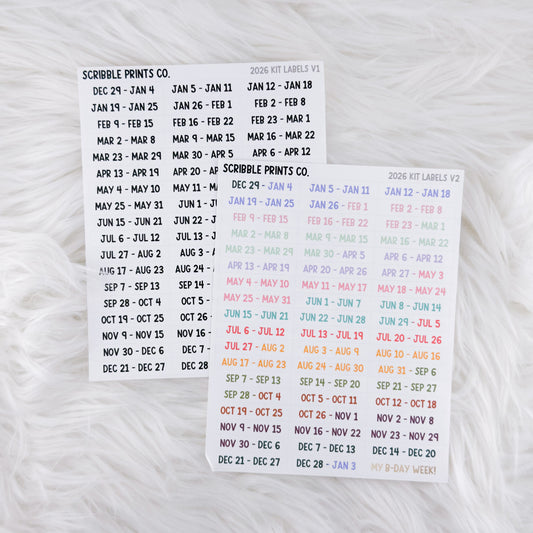 SCRIBBLE PRINTS CO. 2026 KIT LABELS V1
DEC 29 - JAN 4 JAN 5 - JAN 11 JAN 12 - JAN 18
JAN 19 - JAN 25 JAN 26 - FEB 1 FEB 2 - FEB 8
FEB 9 - FEB 15 FEB 16 - FEB 22 FEB 23 - MAR 1
MAR 2 - MAR 8 MAR 9 - MAR 15 MAR 16 - MAR 22
MAR 23 - MAR 29 MAR 30 - APR 5 APR 6 - APR 12
APR 13 - APR 19 APR 20 -
APR 27 - MAY 3
MAY 4 - MAY 10 MAY 11 -
MAY 25 - MAY 31 JUN 1 - JUN
JUN 15 - JUN 21 JUN 22 -
JUL 6 - JUL 12 JUL 13 -
JUL 27 - AUG 2 AUG 3 -
AUG 17 - AUG 23 AUG 24
SEP 7 - SEP 13 SEP 14 -
SEP 28 - OCT 4 OCT 5 -
OCT 19 - OCT 25 OCT 26 -
NOV 9 - NOV 15 NOV 16 -
NOV 30 - DEC 6 DEC 7 -
DEC 21 - DEC 27 DEC 28 -
SCRIBBLE PRINTS CO. 2026 KIT LABELS V2
DEC 29 - JAN 4 JAN 5 - JAN 11 JAN 12 - JAN 18
JAN 19 - JAN 25 JAN 26 - FEB 1 FEB 2 - FEB 8
FEB 9 - FEB 15 FEB 16 - FEB 22 FEB 23 - MAR 1
MAR 2 - MAR 8 MAR 9 - MAR 15 MAR 16 - MAR 22
MAR 23 - MAR 29 MAR 30 - APR 5 APR 6 - APR 12
APR 13 - APR 19 APR 20 - APR 26 APR 27 - MAY 3
MAY 4 - MAY 10 MAY 11 - MAY 17 MAY 18 - MAY 24
MAY 25 - MAY 31 JUN 1 - JUN 7 JUN 8 - JUN 14
JUN 15 - JUN 21 JUN 22 - JUN 28 JUN 29 - JUL 5
JUL 6 - JUL 12 JUL 13 - JUL 19 JUL 20 - JUL 26
JUL 27 - AUG 2 AUG 3 - AUG 9 AUG 10 - AUG 16
AUG 17 - AUG 23 AUG 24 - AUG 30 AUG 31 - SEP 6
SEP 7 - SEP 13 SEP 14 - SEP 20 SEP 21 - SEP 27
SEP 28 - OCT 4 OCT 5 - OCT 11 OCT 12 - OCT 18
OCT 19 - OCT 25 OCT 26 - NOV 1 NOV 2 - NOV 8
NOV 9 - NOV 15 NOV 16 - NOV 22 NOV 23 - NOV 29
NOV 30 - DEC 6 DEC 7 - DEC 13 DEC 14 - DEC 20
DEC 21 - DEC 27 DEC 28 - JAN 3 MY B-DAY WEEK!